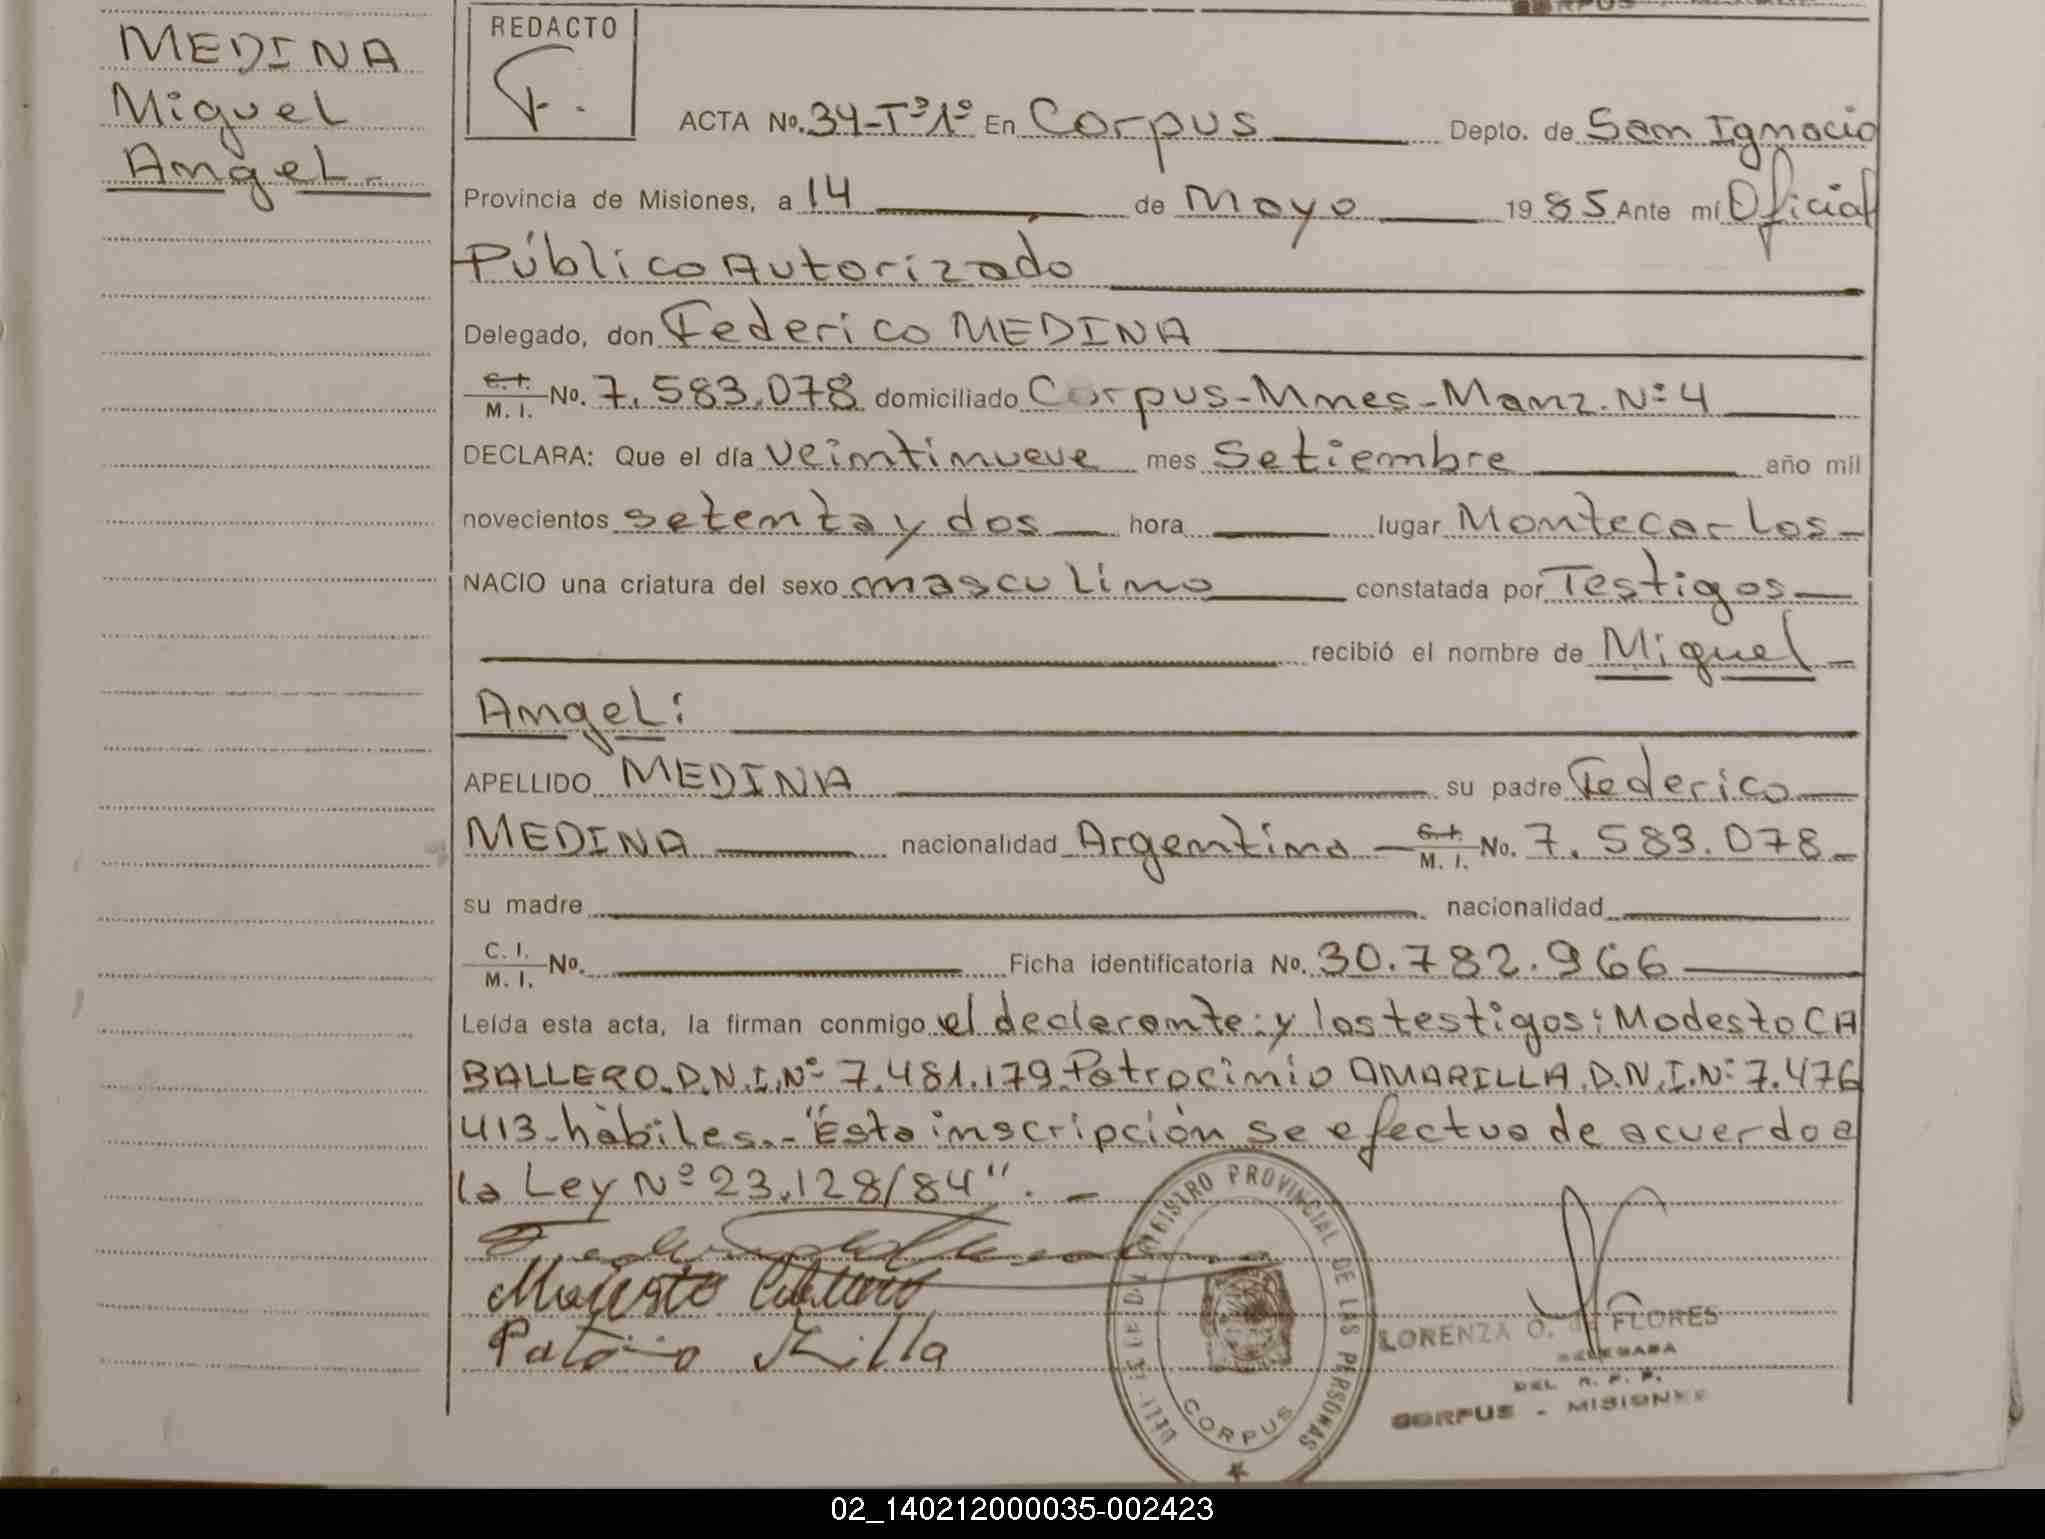 MEDINA
Miguel
Angel-
REDACTO
F.
ACTA No. 34-Tº1º En Corpus Depto. de San Ignacio
Provincia de Misiones, a 14 de Mayo 1985 Ante mí Oficial
Público Autorizado
Delegado, don Federico MEDINA
C.I. M.I. No. 7.583.078 domiciliado Corpus-Mnes-Manz.Nº4
DECLARA: Que el día veintinueve mes Setiembre año mil
novecientos setenta y dos hora lugar Montecarlos-
NACIO una criatura del sexo masculino constatada por Testigos
recibió el nombre de Miguel
Angel:
APELLIDO MEDINA su padre Federico
MEDINA nacionalidad Argentino C.I. M.I. No. 7.583.078-
su madre nacionalidad
C.I. M.I. No. Ficha identificatoria No. 30.782.966
Leída esta acta, la firman conmigo el declarante: y los testigos: Modesto CA
BALLERO.D.N.I.Nº 7.481.179.Patrocinio AMARILLA.D.N.I.Nº 7.476
413-hàbiles.-"Esta inscripción se efectua de acuerdo a
la Ley Nº 23.128/84". -
Modesto Caballero
REGISTRO PROVINCIAL DE LAS PERSONAS
CORPUS
LORENZA O. de FLORES
DELEGADA
DEL R. P. P.
CORPUS - MISIONES
02_140212000035-002423